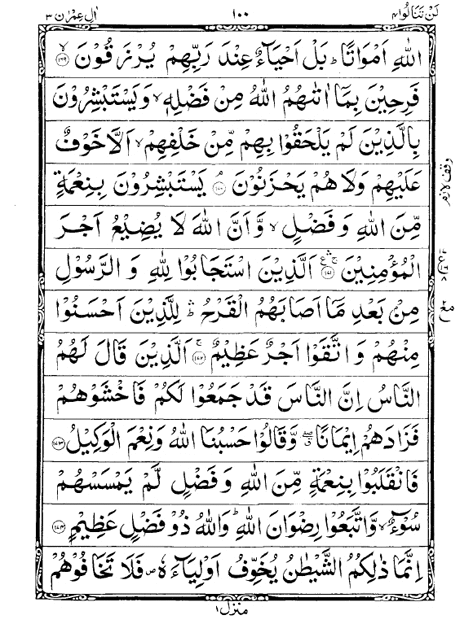 لَنْ تَنَالُوا ٤ ١٠٠ اٰلِ عِمْرٰن ٣
اللّٰهِ اَمْوَاتًا ؕ بَلْ اَحْيَآءٌ عِنْدَ رَبِّهِمْ يُرْزَقُوْنَ ۙ﴿١٦٩﴾
فَرِحِيْنَ بِمَاۤ اٰتٰىهُمُ اللّٰهُ مِنْ فَضْلِهٖ ۙ وَيَسْتَبْشِرُوْنَ
بِالَّذِيْنَ لَمْ يَلْحَقُوْا بِهِمْ مِّنْ خَلْفِهِمْ ۙ اَلَّا خَوْفٌ
عَلَيْهِمْ وَلَا هُمْ يَحْزَنُوْنَ ۘ﴿١٧٠﴾ يَسْتَبْشِرُوْنَ بِنِعْمَةٍ
وقف لازم
مِّنَ اللّٰهِ وَفَضْلٍ ۙ وَّاَنَّ اللّٰهَ لَا يُضِيْعُ اَجْرَ
الْمُؤْمِنِيْنَ ۚۛ﴿١٧١﴾ اَلَّذِيْنَ اسْتَجَابُوْا لِلّٰهِ وَالرَّسُوْلِ
مِنْۢ بَعْدِ مَاۤ اَصَابَهُمُ الْقَرْحُ ؕۛ لِلَّذِيْنَ اَحْسَنُوْا
مِنْهُمْ وَاتَّقَوْا اَجْرٌ عَظِيْمٌ ۚ﴿١٧٢﴾ اَلَّذِيْنَ قَالَ لَهُمُ
النَّاسُ اِنَّ النَّاسَ قَدْ جَمَعُوْا لَكُمْ فَاخْشَوْهُمْ
فَزَادَهُمْ اِيْمَانًا ۖۗ وَّقَالُوْا حَسْبُنَا اللّٰهُ وَنِعْمَ الْوَكِيْلُ ﴿١٧٣﴾
فَانْقَلَبُوْا بِنِعْمَةٍ مِّنَ اللّٰهِ وَفَضْلٍ لَّمْ يَمْسَسْهُمْ
سُوْٓءٌ ۙ وَّاتَّبَعُوْا رِضْوَانَ اللّٰهِ ؕ وَاللّٰهُ ذُوْ فَضْلٍ عَظِيْمٍ ﴿١٧٤﴾
اِنَّمَا ذٰلِكُمُ الشَّيْطٰنُ يُخَوِّفُ اَوْلِيَآءَهٗ ۪ فَلَا تَخَافُوْهُمْ
منزل ١